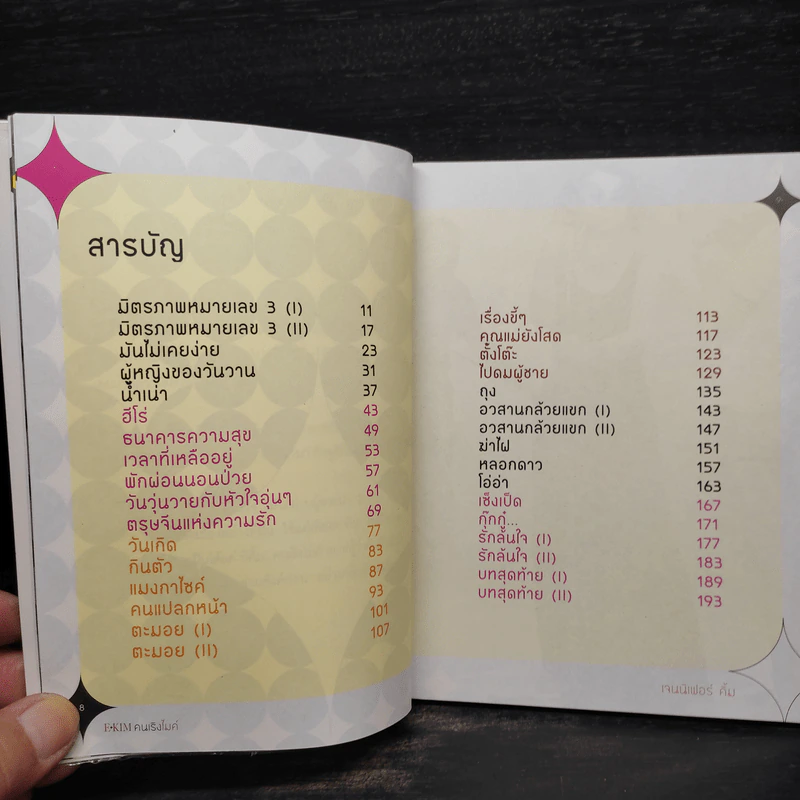 สารบัญ
มิตรภาพหมายเลข 3 (I) 11
มิตรภาพหมายเลข 3 (II) 17
มันไม่เคยง่าย 23
ผู้หญิงของวันวาน 31
น้ำเน่า 37
ฮีโร่ 43
ธนาคารความสุข 49
เวลาที่เหลืออยู่ 53
พักผ่อนนอนป่วย 57
วันวุ่นวายกับหัวใจอุ่นๆ 61
ตรุษจีนแห่งความรัก 69
วันเกิด 77
กินตัว 83
แมงกาไซค์ 87
คนแปลกหน้า 93
ตะมอย (I) 101
ตะมอย (II) 107
8
E-KIM คนเริงไมค์
เรื่องขี้ๆ 113
คุณแม่ยังโสด 117
ตั้งโต๊ะ 123
ไปดมผู้ชาย 129
ถุง 135
อวสานกล้วยแขก (I) 143
อวสานกล้วยแขก (II) 147
ฆ่าไฝ 151
หลอกดาว 157
โอ่อ่า 163
เซ็งเป็ด 167
กุ๊กกู๋... 171
รักล้นใจ (I) 177
รักล้นใจ (II) 183
บทสุดท้าย (I) 189
บทสุดท้าย (II) 193
เจนนิเฟอร์ คิ้ม